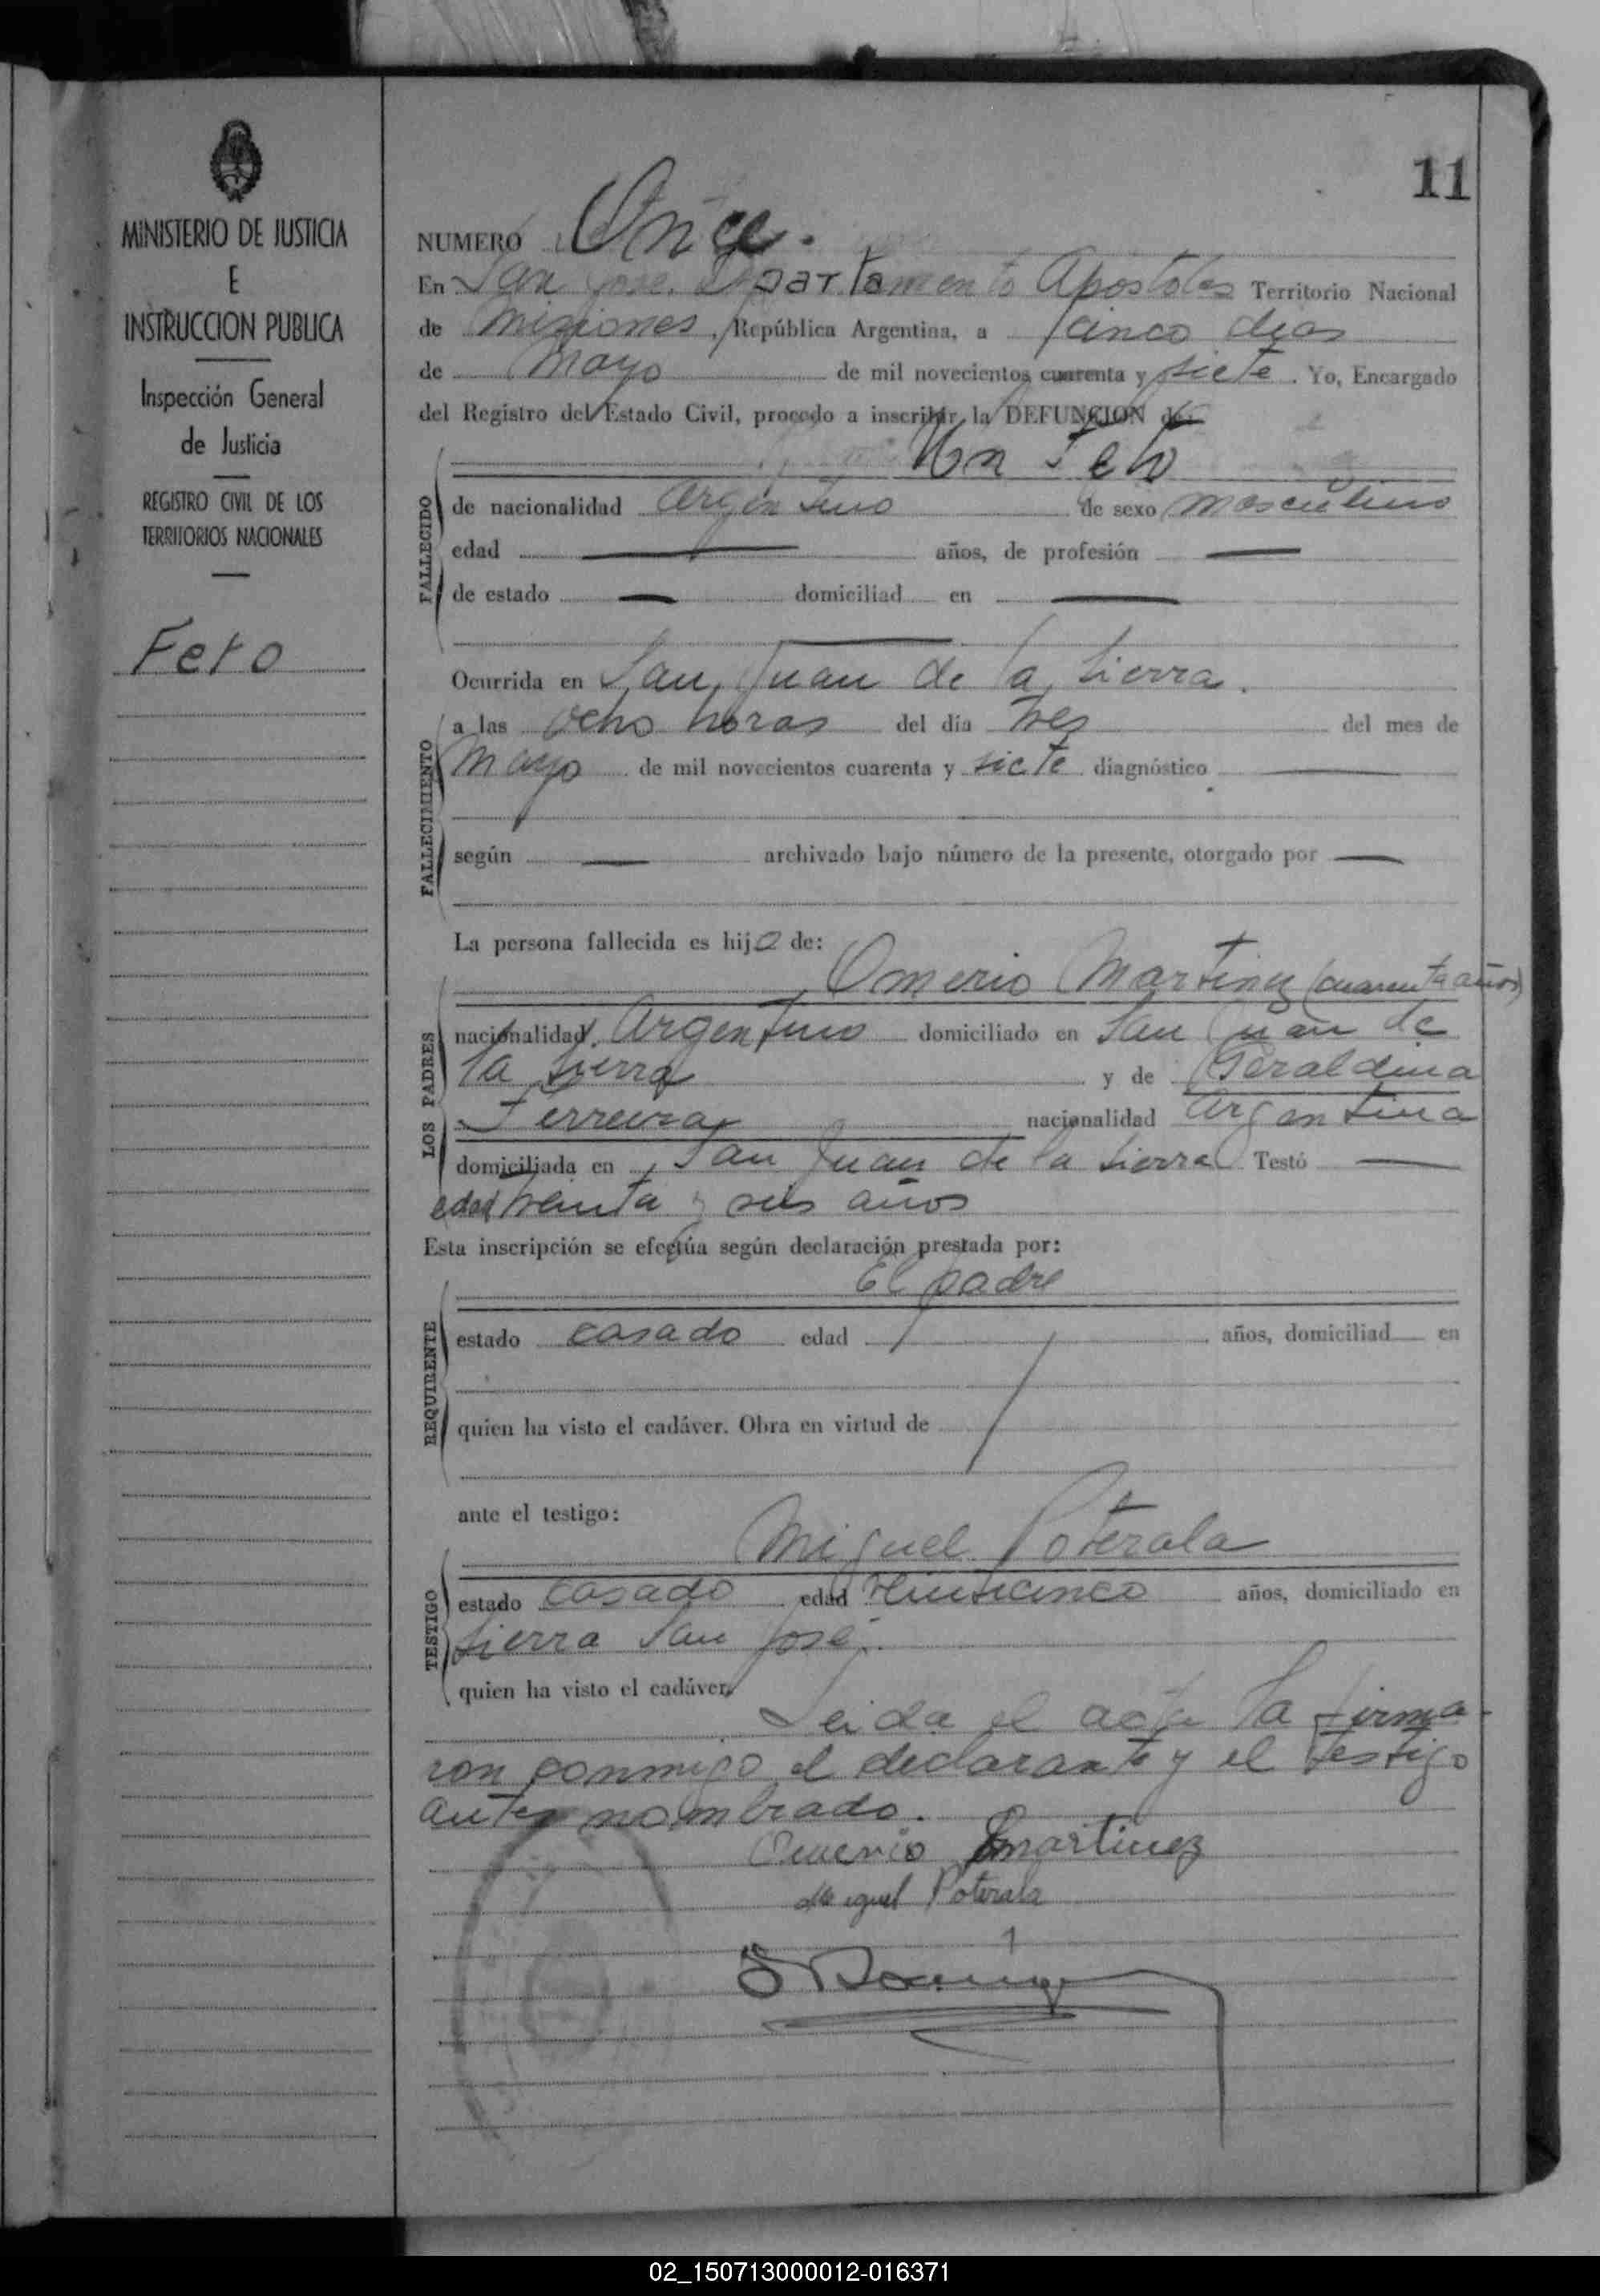 11
MINISTERIO DE JUSTICIA
E
INSTRUCCION PUBLICA
Inspección General
de Justicia
REGISTRO CIVIL DE LOS
TERRITORIOS NACIONALES
Feto
NUMERO Once.
En San José. Departamento Apostoles Territorio Nacional
de Misiones, República Argentina, a cinco dias
de Mayo de mil novecientos cuarenta y siete. Yo, Encargado
del Registro del Estado Civil, procedo a inscribir la DEFUNCION de
Un Feto
FALLECIDO
de nacionalidad Argentino de sexo masculino
edad — años, de profesión —
de estado — domiciliad en —
Ocurrida en San Juan de la Sierra.
FALLECIMIENTO
a las ocho horas del día tres del mes de
Mayo de mil novecientos cuarenta y siete diagnóstico —
según — archivado bajo número de la presente, otorgado por —
La persona fallecida es hijo de:
Omerio Martinez (cuarenta años)
LOS PADRES
nacionalidad Argentino domiciliado en San Juan de
la Sierra y de Geraldina
Ferreira nacionalidad Argentina
domiciliada en San Juan de la Sierra Testó —
edad treinta y seis años
Esta inscripción se efectúa según declaración prestada por:
El padre
REQUIRENTE
estado casado edad años, domiciliad en
quien ha visto el cadáver. Obra en virtud de
ante el testigo:
Miguel Poterala
TESTIGO
estado casado edad veinticinco años, domiciliado en
Sierra San José.
quien ha visto el cadáver,
Leida el acta la firma-
ron conmigo el declarante y el testigo
antes nombrado.
Omerio Martinez
Miguel Poterala
02_150713000012-016371